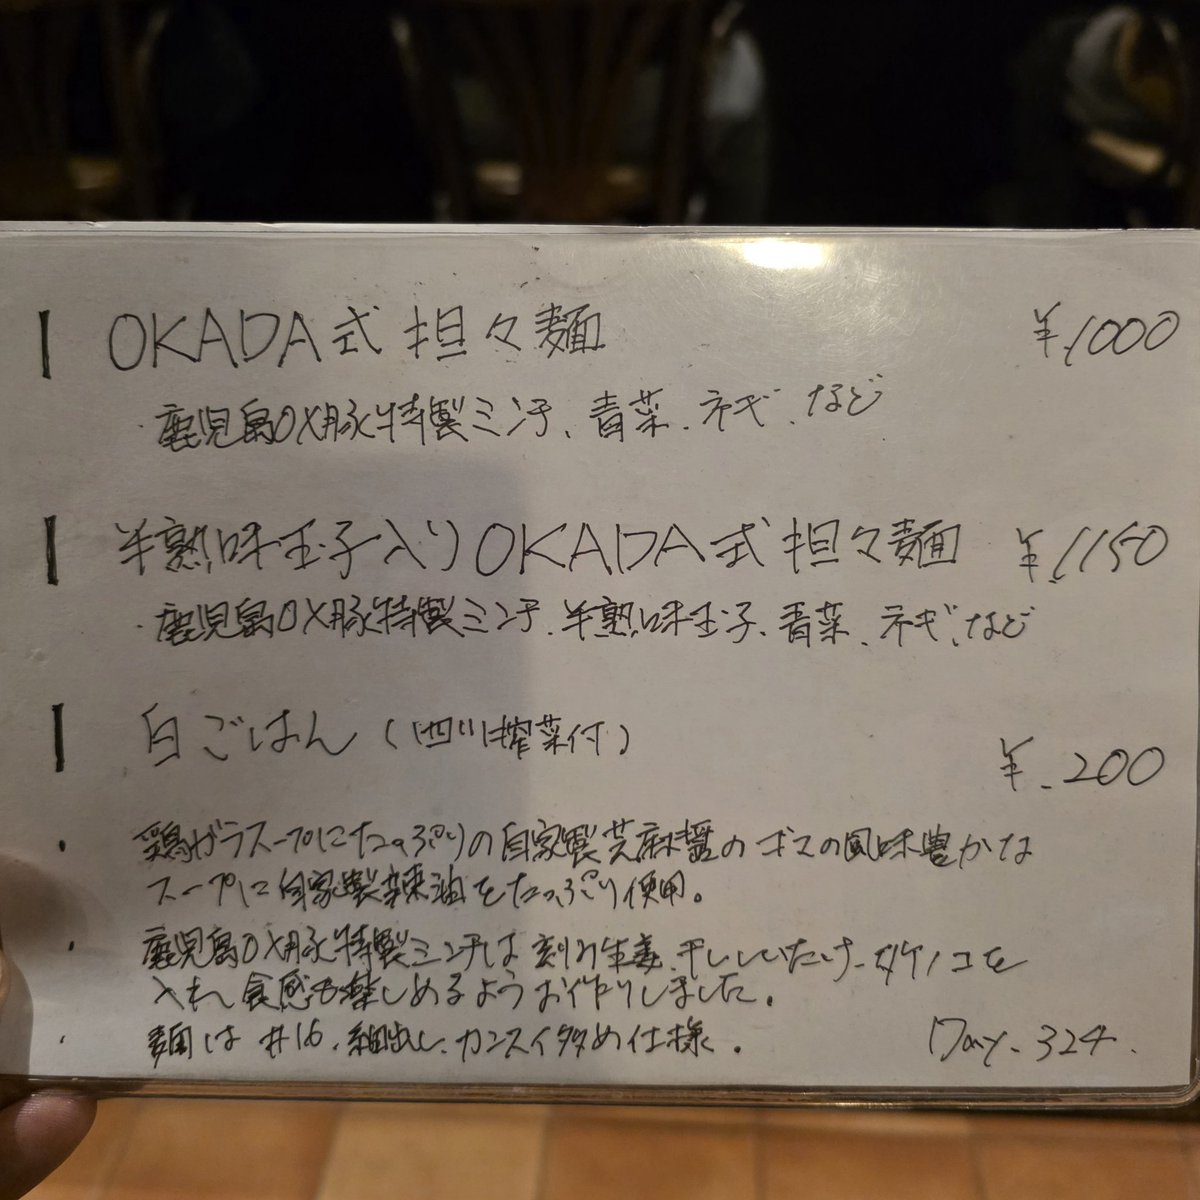 OKADA式 担々麺 ¥.1000
・鹿児島OX豚特製ミンチ、青菜、ネギ、など
半熟味玉子入りOKADA式担々麺 ¥.1150
・鹿児島OX豚特製ミンチ、半熟味玉子、青菜、ネギ、など
白ごはん(四川搾菜付) ¥.200
・鶏ガラスープにたっぷりの自家製芝麻醤のゴマの風味豊かな
スープに自家製辣油をたっぷり使用。
・鹿児島OX豚特製ミンチは刻み生姜、干ししいたけ、タケノコを
入れ食感も楽しめるようお作りしました。
・麺は#16、細出し、カンスイ多め仕様。 Day.324.